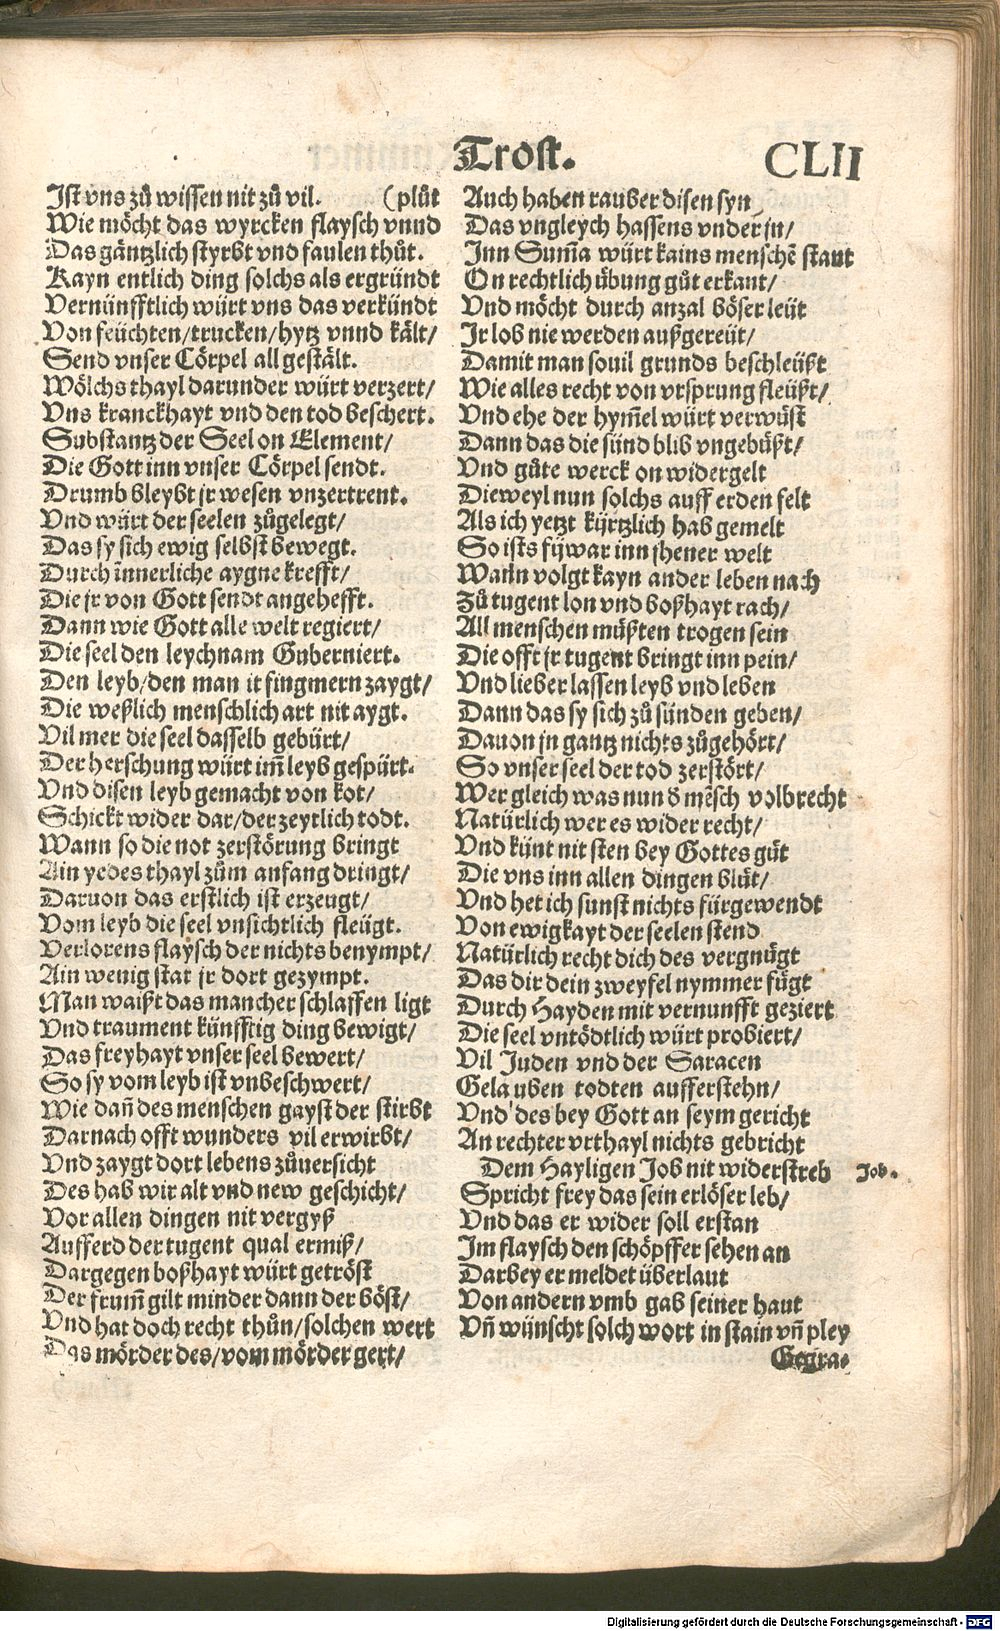 Trost.
CLII
Ist vns zů wissen nit zů vil. (plůt
Wie möcht das wyrcken flaysch vnnd
Das gäntzlich styrbt vnd faulen thůt.
Kayn entlich ding solchs als ergründt
Vernünfftlich würt vns das verkündt
Von feüchten/trucken/hytz vnnd kält/
Send vnser Cörpel all gestält.
Wölchs thayl darunder würt verzert/
Vns kranckhayt vnd den tod beschert.
Substantz der Seel on Element/
Die Gott inn vnser Cörpel sendt.
Drumb bleybt jr wesen vnzertrent.
Vnd würt der seelen zůgelegt/
Das sy sich ewig selbst bewegt.
Durch innerliche aygne krefft/
Die jr von Gott sendt angehefft.
Dann wie Gott alle welt regiert/
Die seel den leychnam Guberniert.
Den leyb/den man it fingmern zaygt/
Die weßlich menschlich art nit aygt.
Vil mer die seel dasselb gebürt/
Der herschung würt im̃ leyb gespürt.
Vnd disen leyb gemacht von kot/
Schickt wider dar/der zeytlich todt.
Wann so die not zerstörung bringt
Ain yedes thayl zům anfang dringt/
Daruon das erstlich ist erzeugt/
Vom leyb die seel vnsichtlich fleügt.
Verlorens flaysch der nichts benympt/
Ain wenig stat jr dort gezympt.
Man waißt das mancher schlaffen ligt
Vnd traument künfftig ding bewigt/
Das freyhayt vnser seel bewert/
So sy vom leyb ist vnbeschwert/
Wie dañ des menschen gayst der stirbt
Darnach offt wunders vil erwirbt/
Vnd zaygt dort lebens zůuersicht
Des hab wir alt vnd new geschicht/
Vor allen dingen nit vergyß
Aufferd der tugent qual ermiß/
Dargegen boßhayt würt getröst
Der frum̃ gilt minder dann der böst/
Vnd hat doch recht thůn/solchen wert
Das mörder des/vom mörder gert/
Auch haben rauber disen syn
Das vngleych hassens vnder jn/
Inn Sum̃a würt kains menschē staut
On rechtlich übung gůt erkant/
Vnd möcht durch anzal böser leüt
Ir lob nie werden außgereüt/
Damit man souil grunds beschleüßt
Wie alles recht von vrsprung fleüßt/
Vnd ehe der hym̃el würt verwüst
Dann das die sünd blib vngebüßt/
Vnd gůte werck on widergelt
Dieweyl nun solchs auff erden felt
Als ich yetzt kürtzlich hab gemelt
So ists fürwar inn jhener welt
Wann volgt kayn ander leben nach
Zů tugent lon vnd boßhayt rach/
All menschen müßten trogen sein
Die offt jr tugent bringt inn pein/
Vnd lieber lassen leyb vnd leben
Dann das sy sich zů sünden geben/
Dauon jn gantz nichts zůgehört/
So vnser seel der tod zerstört/
Wer gleich was nun ð mēsch volbrecht
Natürlich wer es wider recht/
Vnd künt nit sten bey Gottes güt
Die vns inn allen dingen blüt/
Vnd het ich sunst nichts fürgewendt
Von ewigkayt der seelen stend
Natürlich recht dich des vergnügt
Das dir dein zweyfel nymmer fügt
Durch Hayden mit vernunfft geziert
Die seel vntödtlich würt probiert/
Vil Juden vnd der Saracen
Gelauben todten aufferstehn/
Vnd des bey Gott an seym gericht
An rechter vrthayl nichts gebricht
Dem Hayligen Job nit widerstreb
Job.
Spricht frey das sein erlöser leb/
Vnd das er wider soll erstan
Im flaysch den schöpffer sehen an
Darbey er meldet überlaut
Von andern vmb gab seiner haut
Vñ wünscht solch wort in stain vñ pley
Gegra-
Digitalisierung gefördert durch die Deutsche Forschungsgemeinschaft - DFG